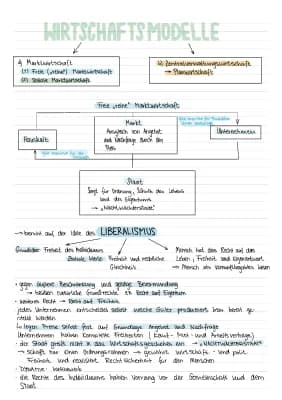 WIRTSCHAFTSMODELLE
1) Marktwirtschaft
(1) Freie („reine") Marktwirtschaft
(2) Soziale Marktwirtschaft
2) Zentralverwaltungswirtschaft
→ Planwirtschaft
Freie „reine" Marktwirtschaft
Markt
Ausgleich von Angebot
und Nachfrage durch den
Preis
Haushalt
Unternehmen
Staat
Sorgt für Ordnung, Schutz des Lebens
und des Eigentums
→ „Nachtwächterstaat"
→ beruht auf der Idee des LIBERALISMUS
Grundidee: Freiheit des Individuums
Zentrale Werte: Freiheit und rechtliche
Gleichheit
Mensch hat das Recht auf das
Leben, Freiheit und Eigenständigkeit
→ Mensch als vernunftbegabtes Wesen
• gegen äußere Beschränkung und geistige Bevormundung
→ Recht auf Eigentum
→ Recht auf Freiheit
jedes Unternehmen entscheidet selbst welche Güter produziert bzw bereit ge
stellt werden
↳ legen Preise selbst fest auf Grundlage Angebot und Nachfrage
Unternehmen haben komplette Freiheiten (Kauf-, Miet- und Arbeitsverträge)
• der Staat greift nicht in das Wirtschaftsgeschehen ein → „Nachtwächterstaat"
→ schafft nur einen Ordnungsrahmen → gewährt wirtschaft. und polit.
Freiheit und rechtliche Rechtssicherheit für den Menschen
die Rechte des Individuums haben Vorrang vor der Gemeinschaft und dem
Staat